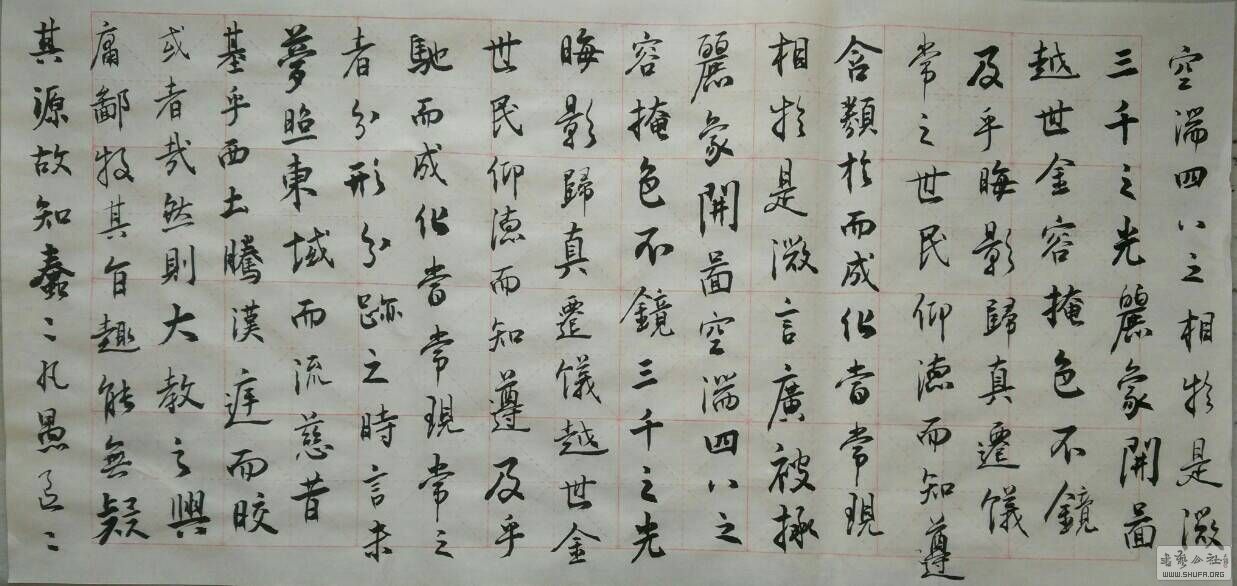 空端四八之相於是微
三千之光麗象開圖
越世金容掩色不鏡
及乎晦影歸真遷儀
常之世民仰德而知遵
含類於而成化當常現
相於是微言廣被拯
麗象開圖空端四八之
容掩色不鏡三千之光
晦影歸真遷儀越世金
世民仰德而知遵及乎
馳而成化當常現常之
者分形分跡之時言未
夢照東域而流慈昔
基乎西土騰漢庭而皎
或者哉然則大教之興
庸鄙投其旨趣能無疑
其源故知蠢々凡愚區々
書藝公社
WWW.SHUFA.ORG